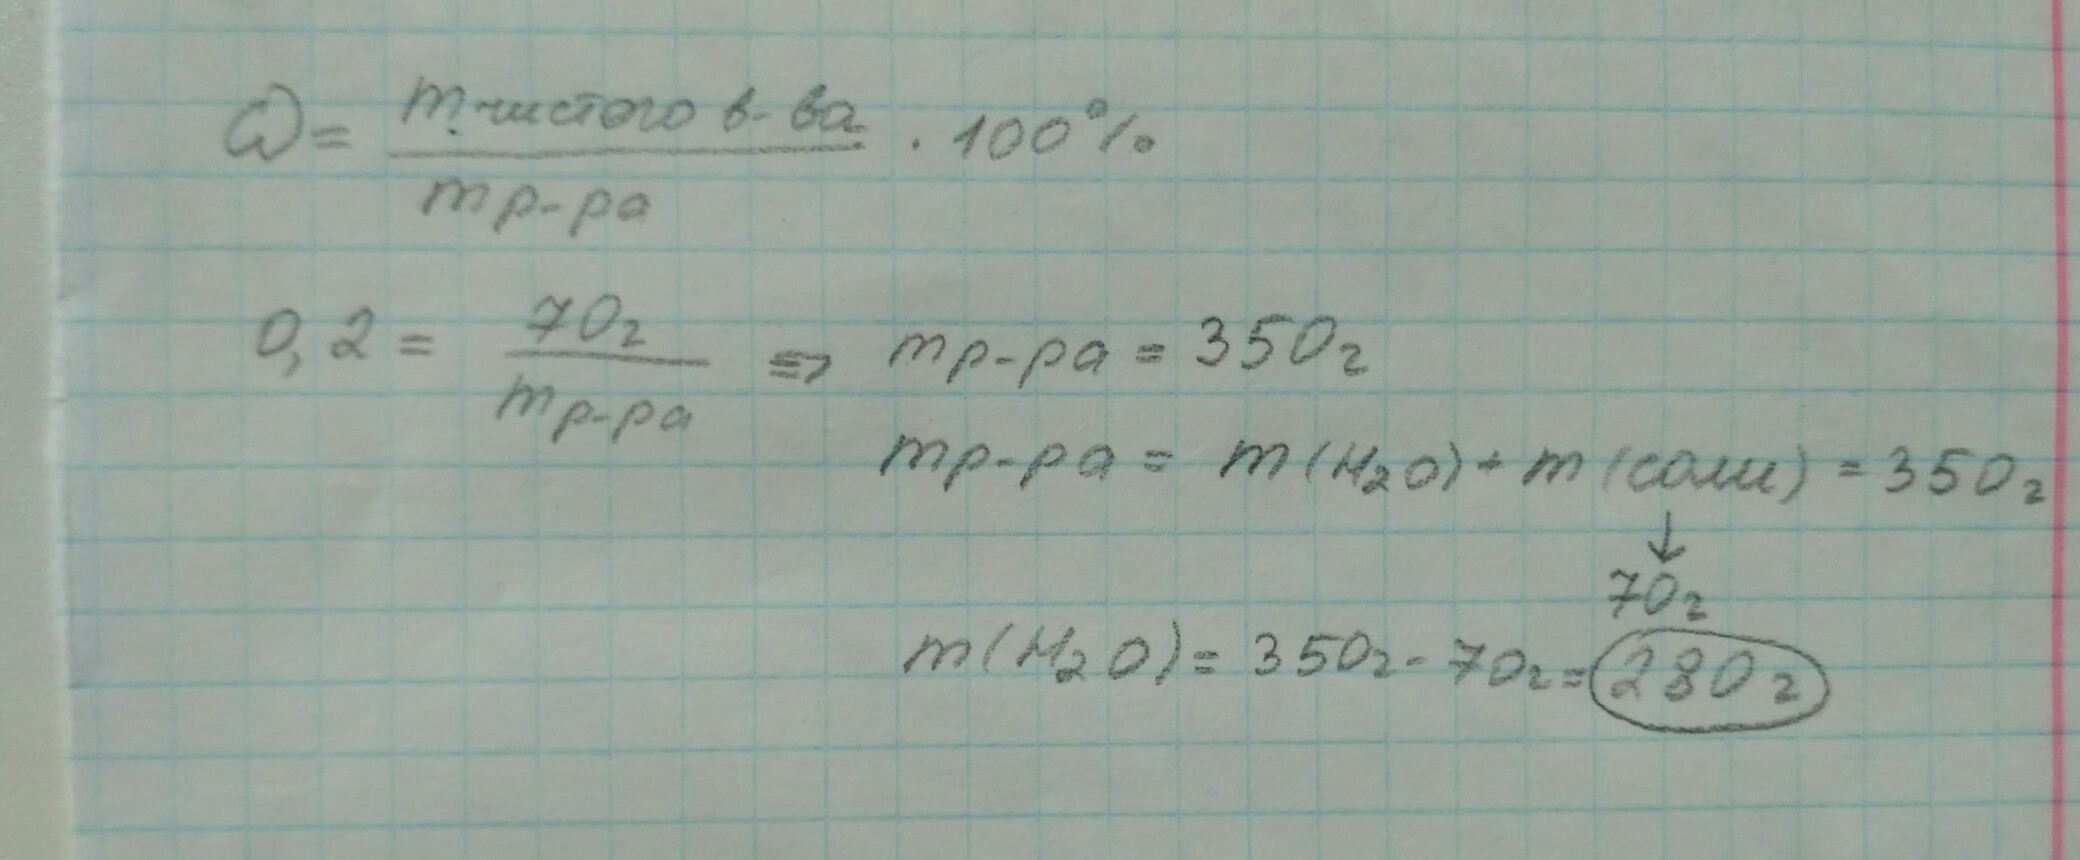 ω = m чистого в-ва / m р-ра · 100%
0,2 = 70г / m р-ра => m р-ра = 350г
m р-ра = m(H₂O) + m(соли) = 350г
↓
70г
m(H₂O) = 350г - 70г = 280г